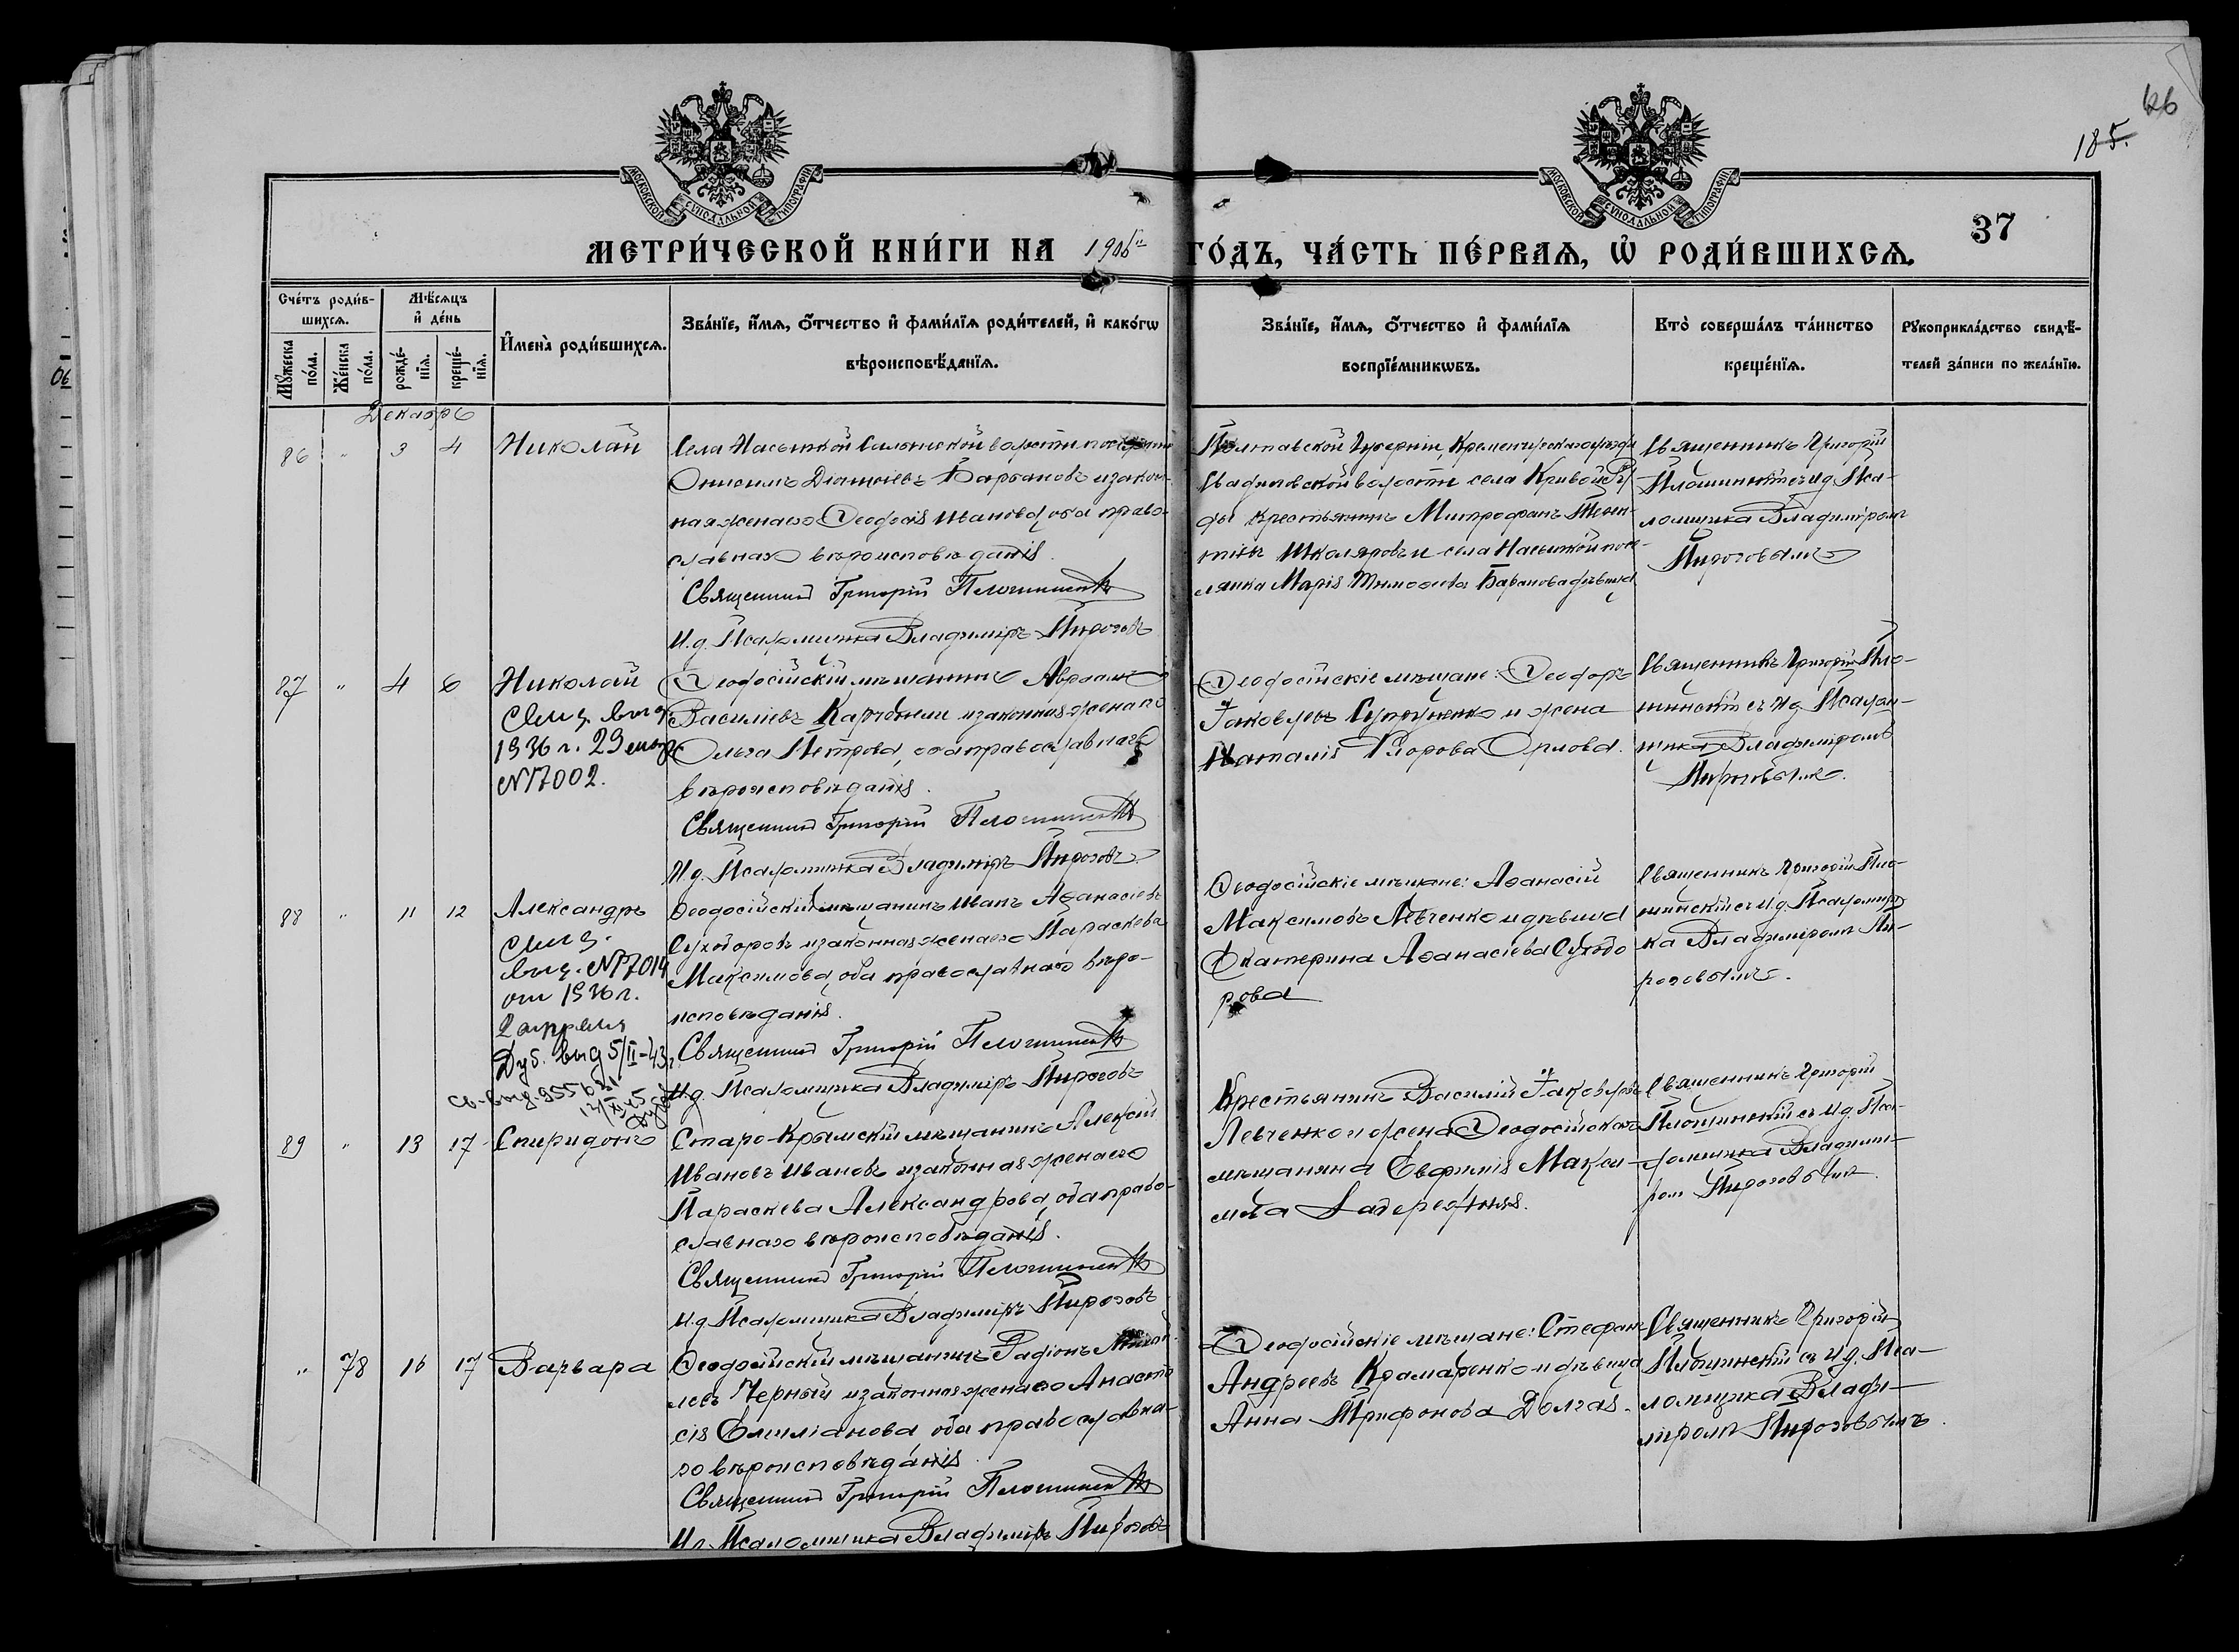 626
185.
37
МОСКОВСКОЙ СѴНОДАЛЬНОЙ ТИПОГРАФІИ
МОСКОВСКОЙ СѴНОДАЛЬНОЙ ТИПОГРАФІИ
МЕТРИ́ЧЕСКОЙ КНИ́ГИ НА 1906й ГО́ДЪ, ЧА́СТЬ ПЕ́РВАѦ, Ѡ҆ РОДИ́ВШИХСѦ.
Сче́тъ роди́в-
шихсѧ.
Мꙋ́жеска
по́ла.
Же́нска
по́ла.
Мѣ́сѧцъ
и҆ де́нь
рожде́-
нїѧ.
креще́-
нїѧ.
И҆мена̀ роди́вшихсѧ.
Зва́нїе, и҆́мѧ, ѻ҆́тчество и҆ фами́лїѧ роди́телей, и҆ како́гѡ
вѣроисповѣ́данїѧ.
Зва́нїе, и҆́мѧ, ѻ҆́тчество и҆ фами́лїѧ
воспрїе́мникѡвъ.
Кто̀ соверша́лъ та́инство
креще́нїѧ.
Рꙋкоприкла́дство свидѣ́-
телей за́писи по жела́нїю.
Декабрь
86 " 3 4 Николай
Села Насыпкой Салынской волости поселянинъ
Онисимъ Барановъ и закон-
ная жена его Ѳеодосія Иванова, оба право-
славнаго вѣроисповѣданія.
Священникъ Григорій
И.д. Псаломщика Владиміръ Пироговъ
Полтавской Губерніи, Кременчугскаго уѣзда
волости села Кривой Ру-
ды крестьянинъ Митрофанъ Терен-
тіевъ Школяровъ и села Насыпкой посе-
лянка Марія Тимоѳеева Баранова дѣвица
Священникъ Григорій
съ И.д. Пса-
ломщика Владиміромъ
Пироговымъ
87 " 4 6 Николай
Свид. выд.
1936 г. 29 мар.
№17002.
Ѳеодосійскій мѣщанинъ Авраамъ
Василіевъ и законная жена его
Ольга Петрова, оба православнаго
вѣроисповѣданія.
Священникъ Григорій
И.д. Псаломщика Владиміръ Пироговъ
Ѳеодосійскіе мѣщане: Ѳеодоръ
Іаковлевъ Супруненко и жена
Наталія Орлова.
Священникъ Григорій Пло-
шинскій съ И.д. Псалом-
щика Владиміромъ
Пироговымъ.
88 " 11 12 Александръ
Свид.
выд. №17014
от 1936 г.
2 апреля
Дуб. выд 5/II-43 г.
Ѳеодосійскій мѣщанинъ Иванъ Аѳанасіевъ
Сухоборовъ и законная жена его Параскева
Максимова, оба православнаго вѣро-
исповѣданія.
Священникъ Григорій
И.д. Псаломщика Владиміръ Пироговъ
Ѳеодосійскіе мѣщане: Аѳанасій
Максимовъ Левченко и дѣвица
Екатерина Аѳанасіева Сухобо
рова
Священникъ Григорій Пло-
шинскій съ И.д. Псаломщи-
ка Владиміромъ Пи-
роговымъ.
89 " 13 17 Спиридонъ
Старо-Крымскій мѣщанинъ Алексій
Ивановъ Ивановъ и законная жена его
Параскева Александрова, оба право-
славнаго вѣроисповѣданія.
Священникъ Григорій
И.д. Псаломщика Владиміръ Пироговъ
Крестьянинъ Василій Іаковлевъ
Левченко и жена Ѳеодосійскаго
мѣщанина Евфимія Макси-
мова
Священникъ Григорій
Плошинскій съ И.д. Пса-
ломщика Владимі-
ромъ Пироговымъ.
" 78 16 17 Варвара
Ѳеодосійскій мѣщанинъ Радіонъ
Черный и законная жена его Анаста
сія Емиліанова, оба православна-
го вѣроисповѣданія.
Священникъ Григорій
И.д. Псаломщика Владиміръ Пироговъ
Ѳеодосійскіе мѣщане: Стефанъ
Андреевъ Крамаренко и дѣвица
Анна Трифонова Долгая.
Священникъ Григорій
Плошинскій съ И.д. Пса-
ломщика Влади-
міромъ Пироговымъ.